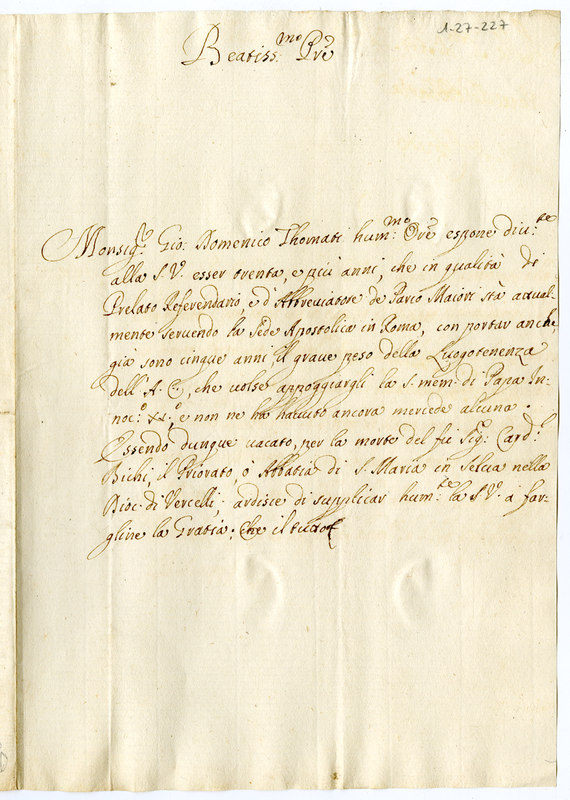 1-27-227
Beatiss.mo Pre
Monsig.r Gio: Domenico Thomati hum.mo Ore espone div.te
alla S.V. esser trenta, e più anni, che in qualità di
Prelato Referendario e d'Abbreviatore de Parco Maiori stà actual-
mente seruendo la Sede Apostolica in Roma, con portar anche
già sono cinque anni, il graue peso della Luogotenenza
dell'A.C., che uolse appoggiargli la S. mem: di Papa In-
noc.o e non ne ha hauuto ancora mercede alcuna.
Essendo dunque uacato, per la morte del fù Sig.r Card.l
Bichi, il Priorato, ò Abbatia di S. Maria in Selua nella
Dioc: di Vercelli, ardisce di supplicar hum.te la S.V. à far-
gline la Gratia; Che il tutto